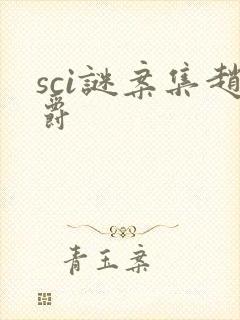 sci謎案集趙
爵
青玉案